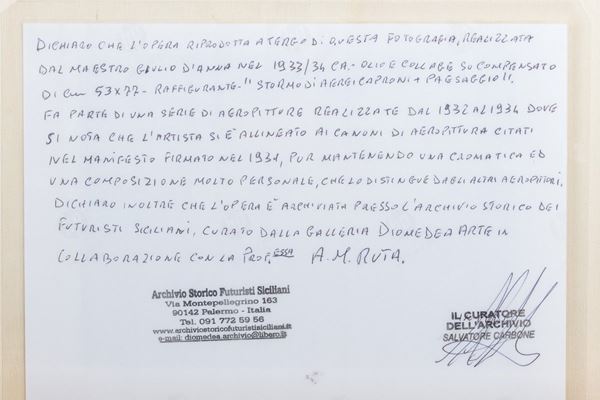 DICHIARO CHE L'OPERA RIPRODOTTA A TERGO DI QUESTA FOTOGRAFIA, REALIZZATA
DAL MAESTRO GIULIO D'ANNA NEL 1933/34 CA. - OLIO E COLLAGE SU COMPENSATO
DI CM 53X77 - RAFFIGURANTE - "STORMO DI AEREI CAPRONI + PAESAGGIO".
FA PARTE DI UNA SERIE DI AEROPITTURE REALIZZATE DAL 1932 AL 1934 DOVE
SI NOTA CHE L'ARTISTA SI È ALLINEATO AI CANONI DI AEROPITTURA CITATI
NEL MANIFESTO FIRMATO NEL 1931, PUR MANTENENDO UNA CROMATICA ED
UNA COMPOSIZIONE MOLTO PERSONALE, CHE LO DISTINGUE DAGLI ALTRI AEROPITTORI.
DICHIARO INOLTRE CHE L'OPERA È ARCHIVIATA PRESSO L'ARCHIVIO STORICO DEI
FUTURISTI SICILIANI, CURATO DALLA GALLERIA DIOMEDEA ARTE IN
COLLABORAZIONE CON LA PROF.ESSA A.M. RUTA.
Archivio Storico Futuristi Siciliani
Via Montepellegrino 163
90142 Palermo - Italia
Tel. 091 772 59 56
www.archiviostoricofuturistisiciliani.it
e-mail: diomedea.archivio@libero.it
IL CURATORE
DELL'ARCHIVIO
SALVATORE CARBONE